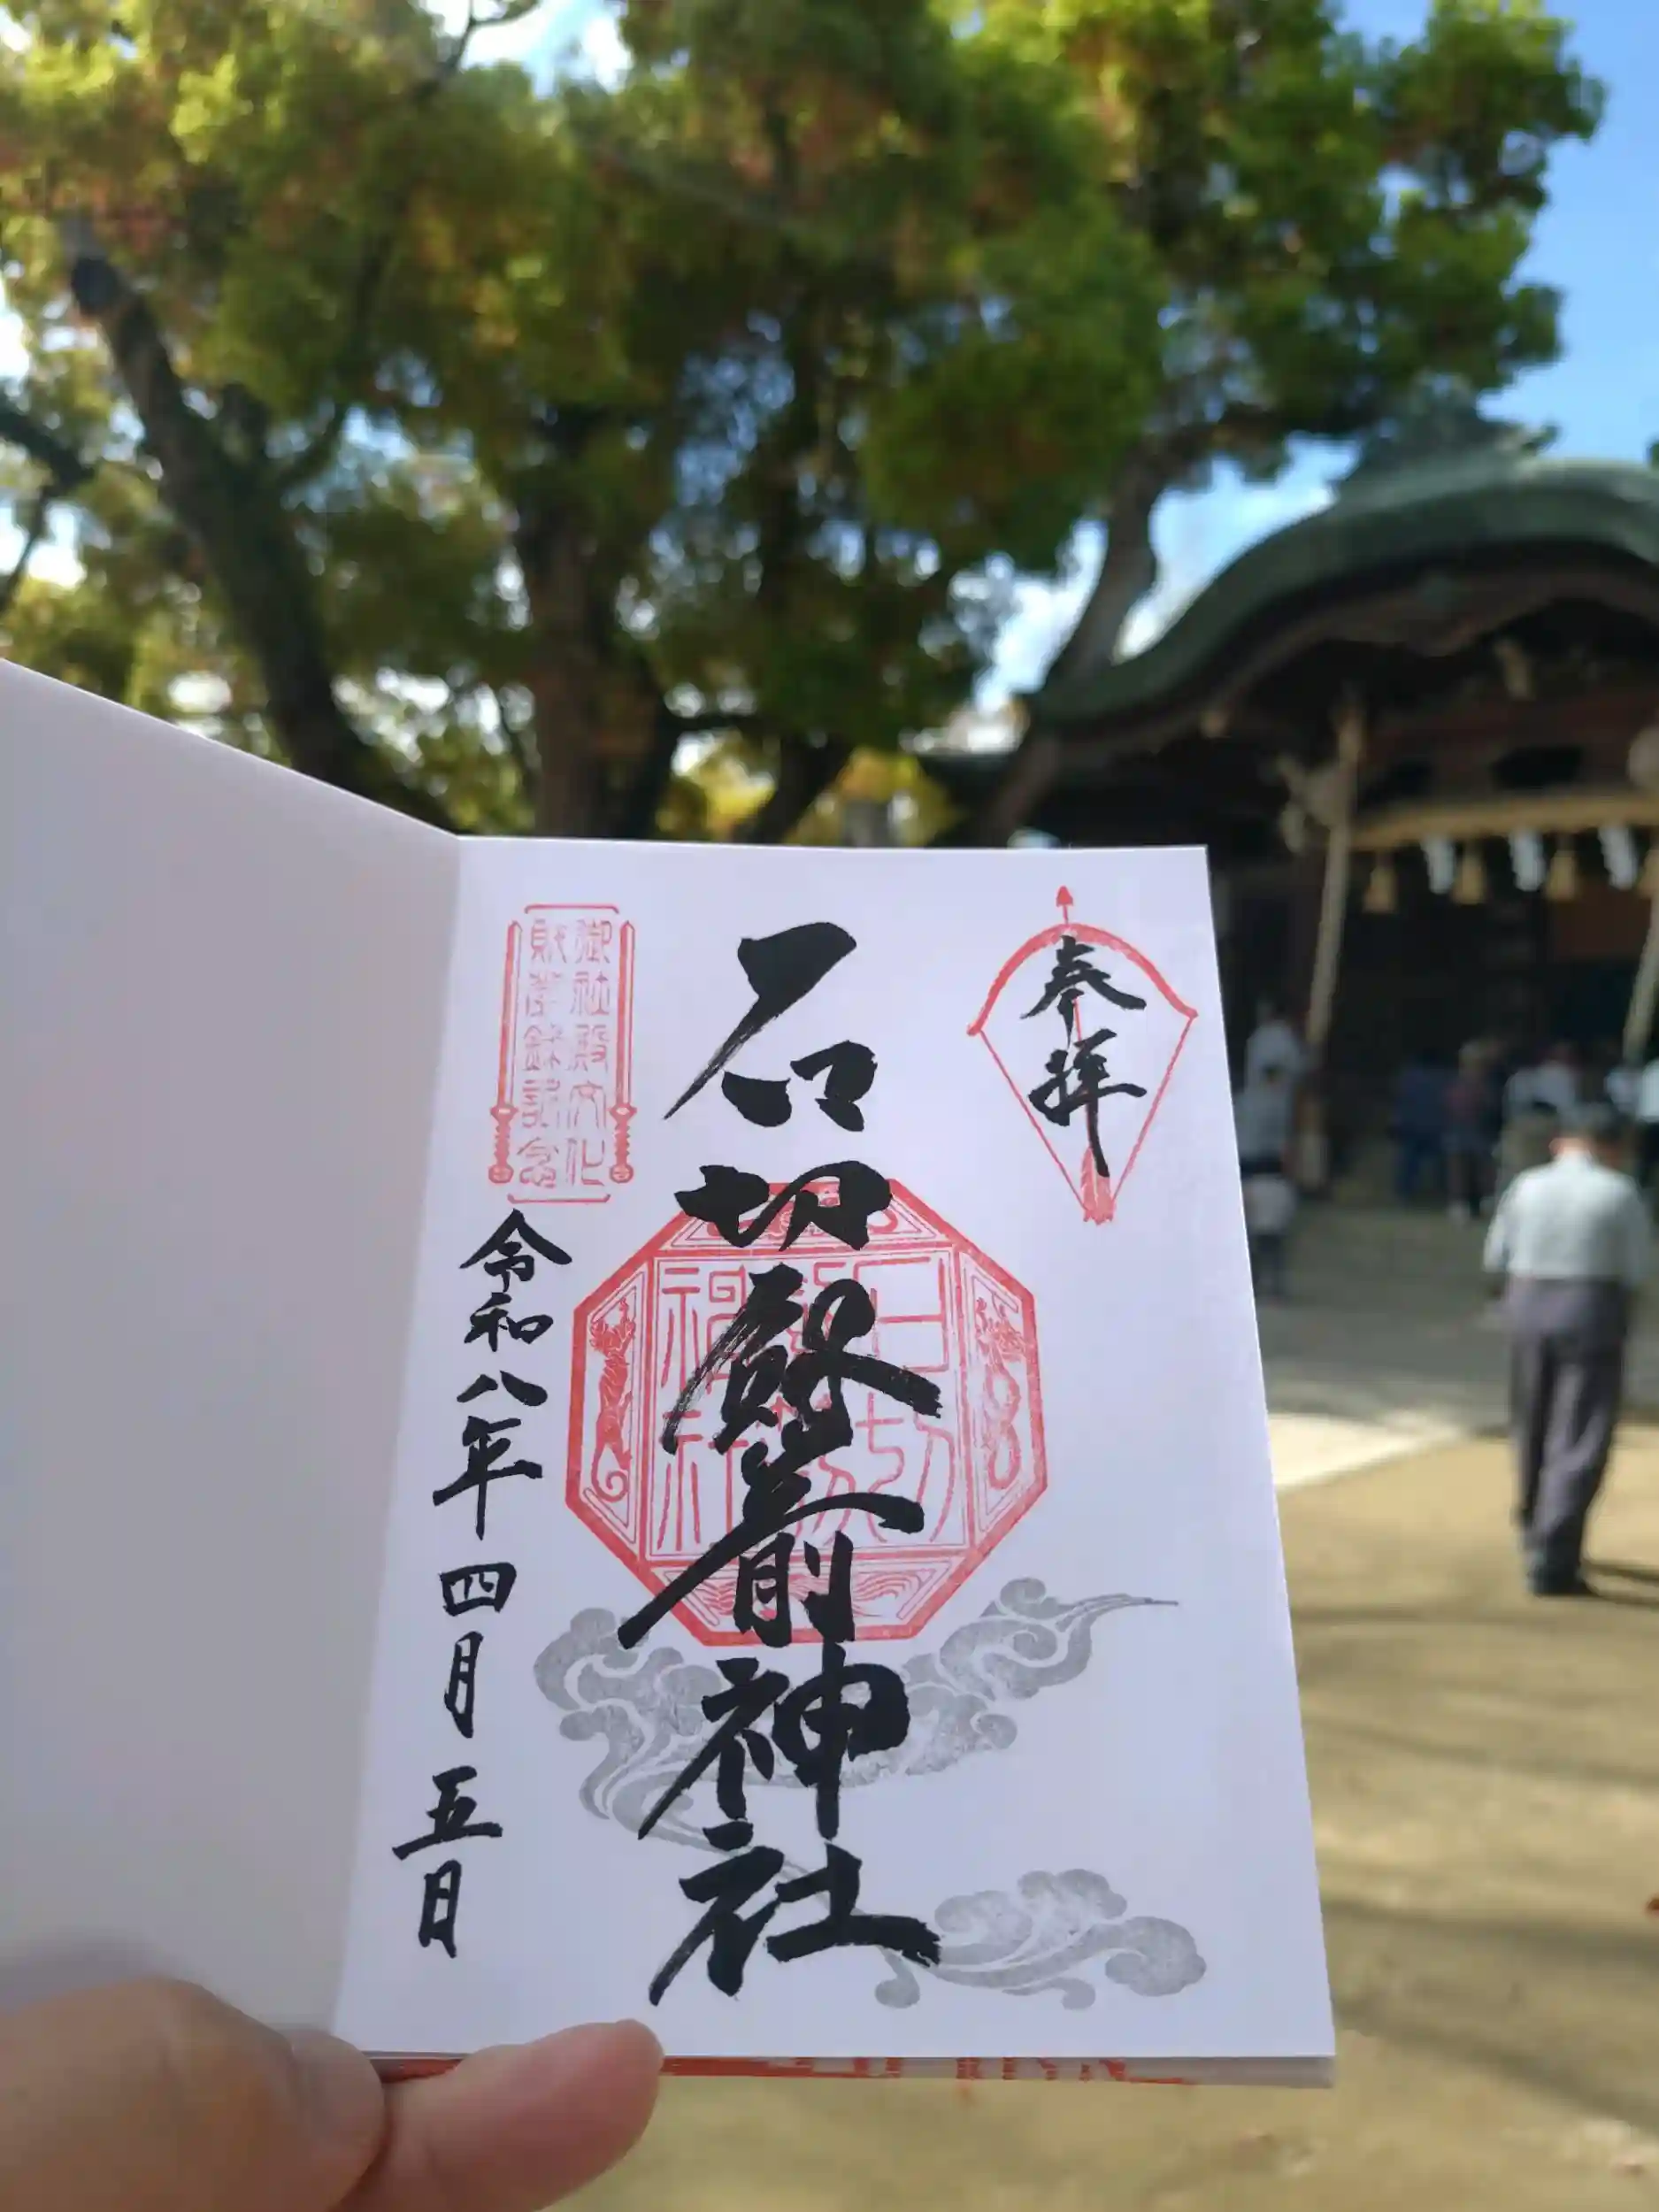 奉拝
石切劔箭神社
石切
神社
御社殿文化
財登録記念
令和八年四月五日